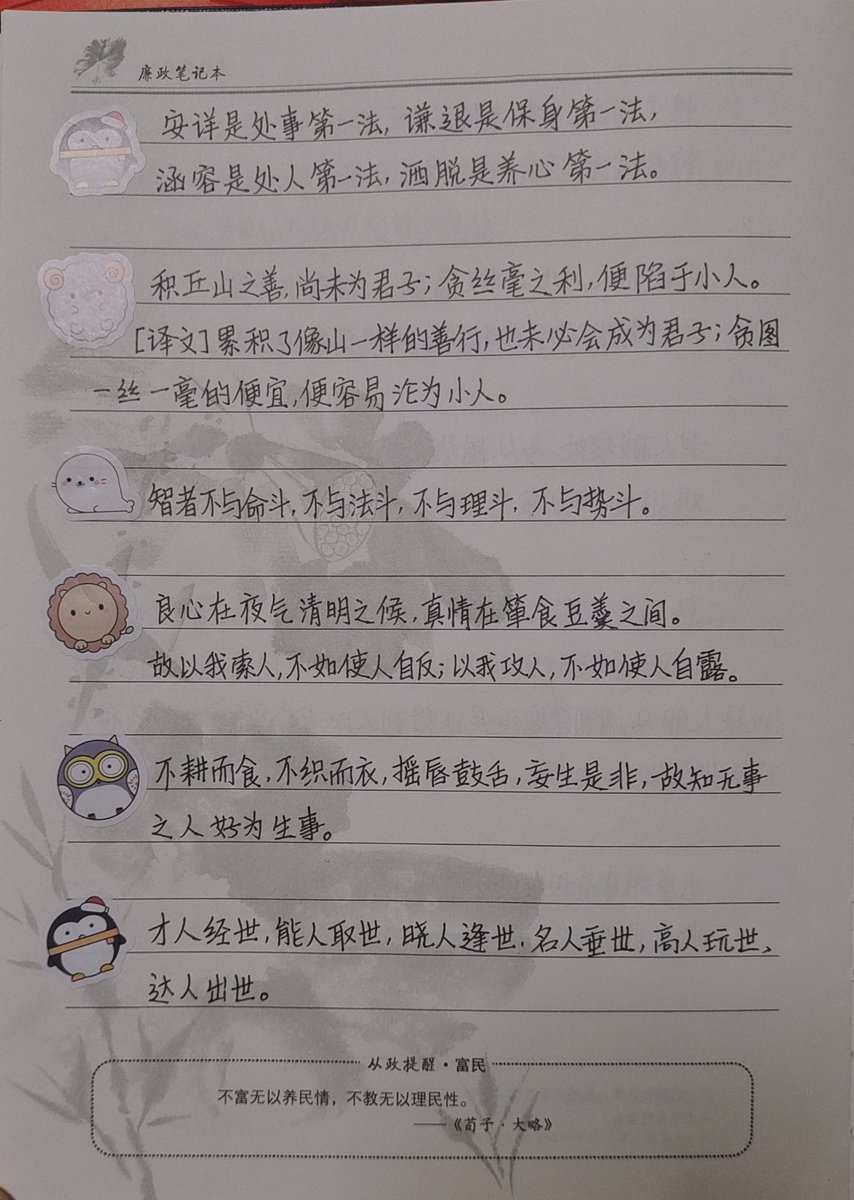 廉政笔记本
安详是处事第一法，谦退是保身第一法，
涵容是处人第一法，洒脱是养心第一法。
积丘山之善，尚未为君子；贪丝毫之利，便陷于小人。
[译文]累积了像山一样的善行，也未必会成为君子；贪图
一丝一毫的便宜，便容易沦为小人。
智者不与命斗，不与法斗，不与理斗，不与势斗。
良心在夜气清明之候，真情在箪食豆羹之间。
故以我索人，不如使人自反；以我攻人，不如使人自露。
不耕而食，不织而衣，摇唇鼓舌，妄生是非，故知无事
之人好为生事。
才人经世，能人取世，晓人逢世，名人垂世，高人玩世、
达人出世。
从政提醒·富民
不富无以养民情，不教无以理民性。
——《荀子·大略》